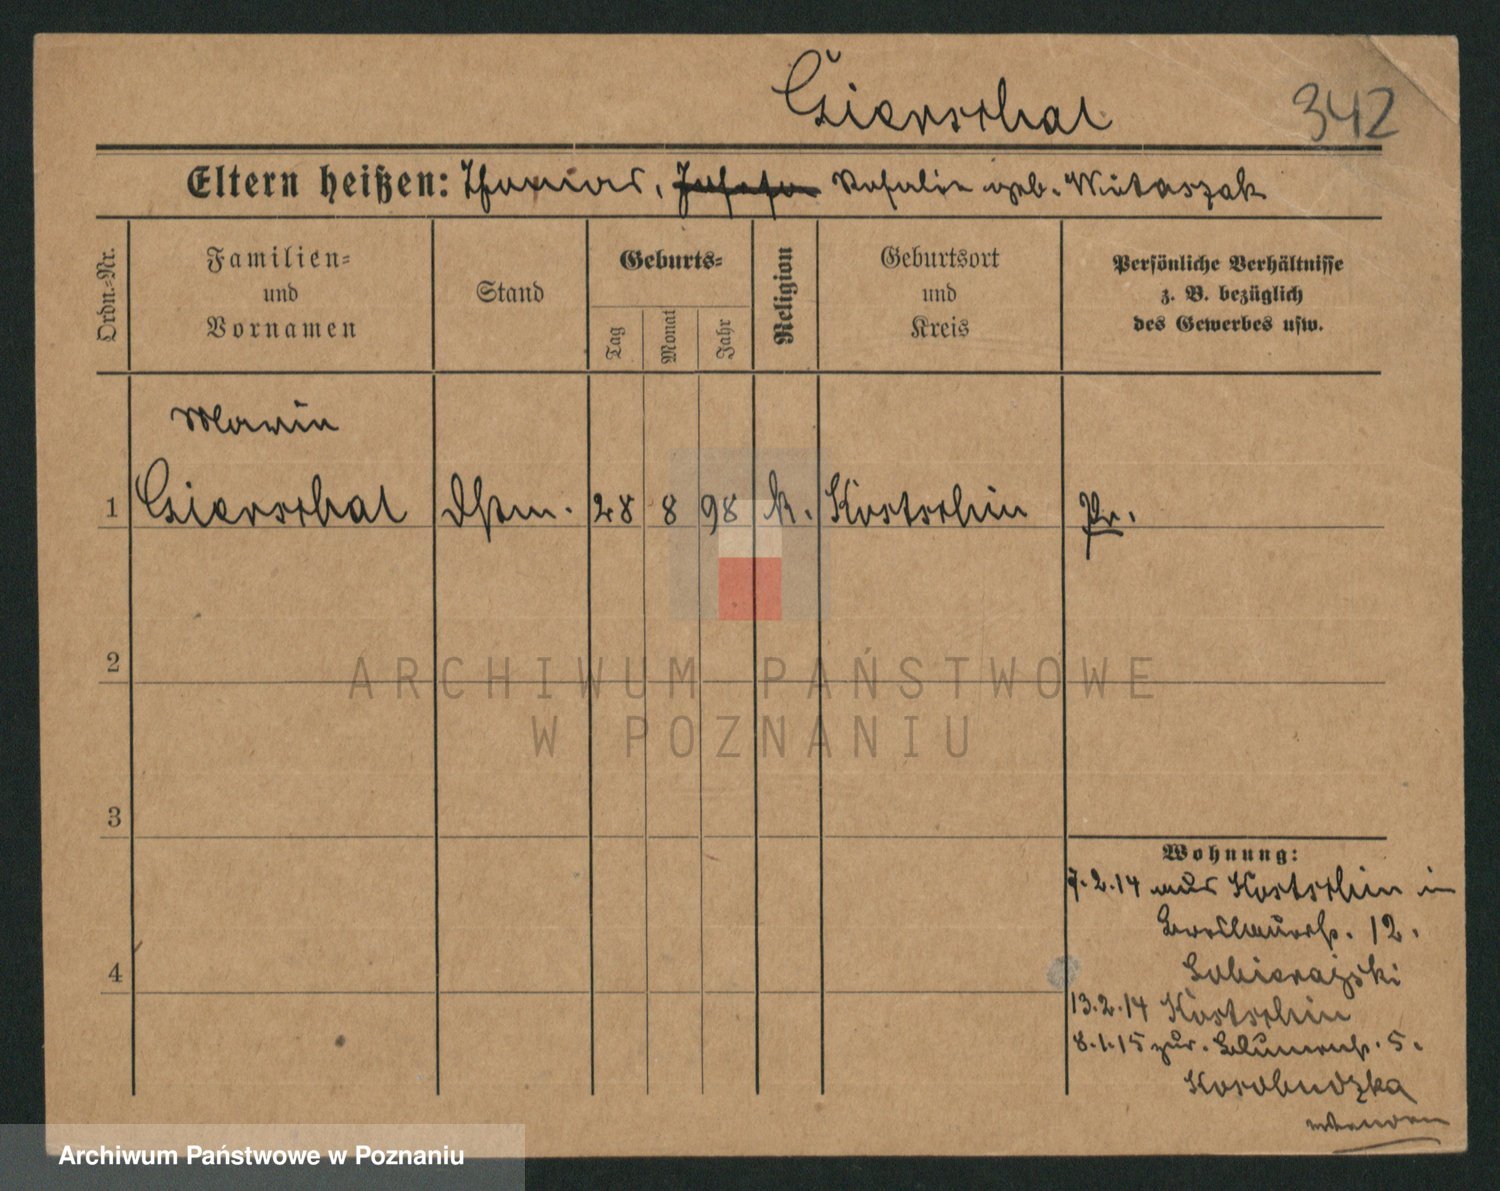 Giersthal
342
Eltern heißen: Thomas, Josefa Rosalie geb. Wútaszak
Ordn.-Nr.
Familien-
und
Vornamen
Stand
Geburts-
Tag
Monat
Jahr
Religion
Geburtsort
und
Kreis
Persönliche Verhältnisse
z. B. bezüglich
des Gewerbes usw.
Marie
1 Giersthal Dstm. 28 8 98 k. Kostschin Pr.
2
ARCHIWUM PAŃSTWOWE
W POZNANIU
3
Wohnung:
7.2.14 aus Kostschin in
12.
13.2.14 Kostschin
8.1.15 zur. Blumenstr. 5.
wenden
4
Archiwum Państwowe w Poznaniu